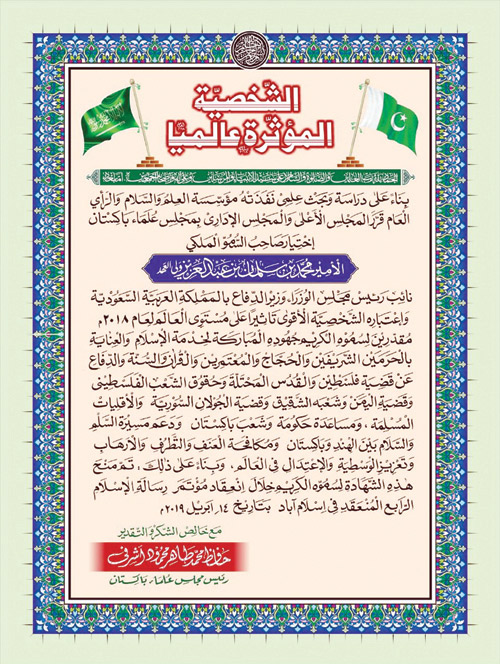 الشخصيّة
المؤثّرة عالميًّا
بناءً على دراسة وبحث علمي نفذته مؤسسة العلم والسلام والرأي
العام قرر المجلس الأعلى والمجلس الإداري بمجلس علماء باكستان
إختيار صاحب السُّمُوّ الملكي
الأمير محمد بن سلمان بن عبد العزيز ولي العهد
نائب رئيس مجلس الوزراء، وزير الدفاع بالمملكة العربية السعودية
واعتباره الشخصية الأقوى تأثيراً على مستوى العالم لعام ٢٠١٨م
مقدرين لسموه الكريم جهوده المباركة لخدمة الإسلام والعناية
بالحرمين الشريفين والحجاج والمعتمرين والقرآن والسنة والدفاع
عن قضية فلسطين والقدس المحتلة وحقوق الشعب الفلسطيني
وقضية اليمن وشعبه الشقيق وقضية الجولان السورية والأقليات
المسلمة، ومساعدة حكومة وشعب باكستان ودعم مسيرة السلم
والسلام بين الهند وباكستان ومكافحة العنف والتطرف والارهاب
وتعزيز الوسطية والاعتدال في العالم، وبناء على ذلك، تم منح
هذه الشهادة لسموه الكريم خلال انعقاد مؤتمر رسالة الإسلام
الرابع المنعقد في إسلام آباد بتاريخ ١٤ ابريل ٢٠١٩م
مع خالص الشكر والتقدير
حافظ محمد طاهر محمود أشرفي
رئيس مجلس علماء باكستان